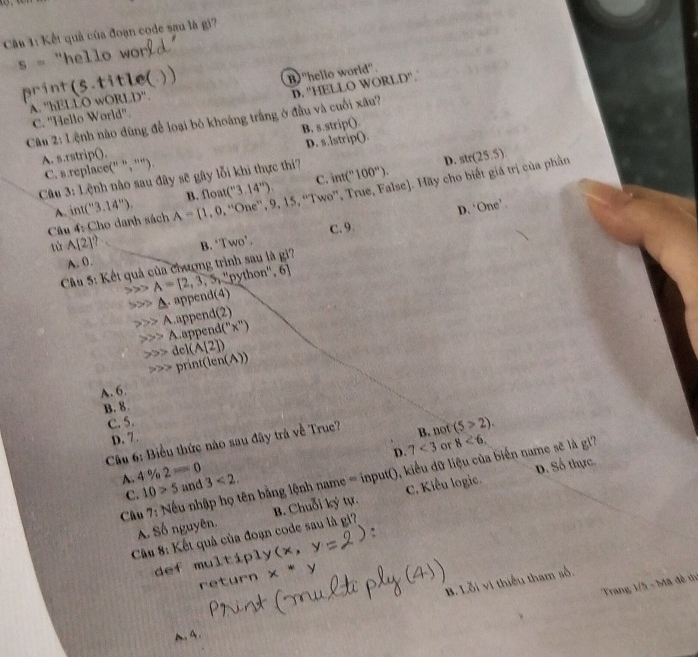 Câu 1: Kết quả của đoạn code sau là gì?
s = "hello world"
print(s.title())
A. "hELLO wORLD".
B. "hello world".
C. "Hello World".
D. "HELLO WORLD".
Câu 2: Lệnh nào dùng để loại bỏ khoảng trắng ở đầu và cuối xâu?
A. s.rstrip().
B. s.strip().
C. s.replace(" ", "").
D. s.lstrip().
Câu 3: Lệnh nào sau đây sẽ gây lỗi khi thực thi?
A. int("3.14").
B. float("3.14").
C. int("100").
D. str(25.5).
Câu 4: Cho danh sách A = [1, 0, "One", 9, 15, "Two", True, False]. Hãy cho biết giá trị của phần
tử A[2]?
A. 0.
B. 'Two'.
C. 9.
D. 'One'.
Câu 5: Kết quả của chương trình sau là gì?
>>> A = [2, 3, 5, "python", 6]
>>> A. append(4)
>>> A.append(2)
>>> A.append("x")
>>> del(A[2])
>>> print(len(A))
A. 6.
B. 8.
C. 5.
D. 7.
Câu 6: Biểu thức nào sau đây trả về True?
A. 4 % 2 == 0
B. not (5 > 2).
C. 10 > 5 and 3 < 2.
D. 7 < 3 or 8 < 6.
Câu 7: Nếu nhập họ tên bằng lệnh name = input(), kiểu dữ liệu của biến name sẽ là gì?
A. Số nguyên.
B. Chuỗi ký tự.
C. Kiểu logic.
D. Số thực.
Câu 8: Kết quả của đoạn code sau là gì?
def multiply(x, y=2):
return x * y
Print (multi ply (4))
A. 4.
B. Lỗi vì thiếu tham số.
Trang 1/3 - Mã đề